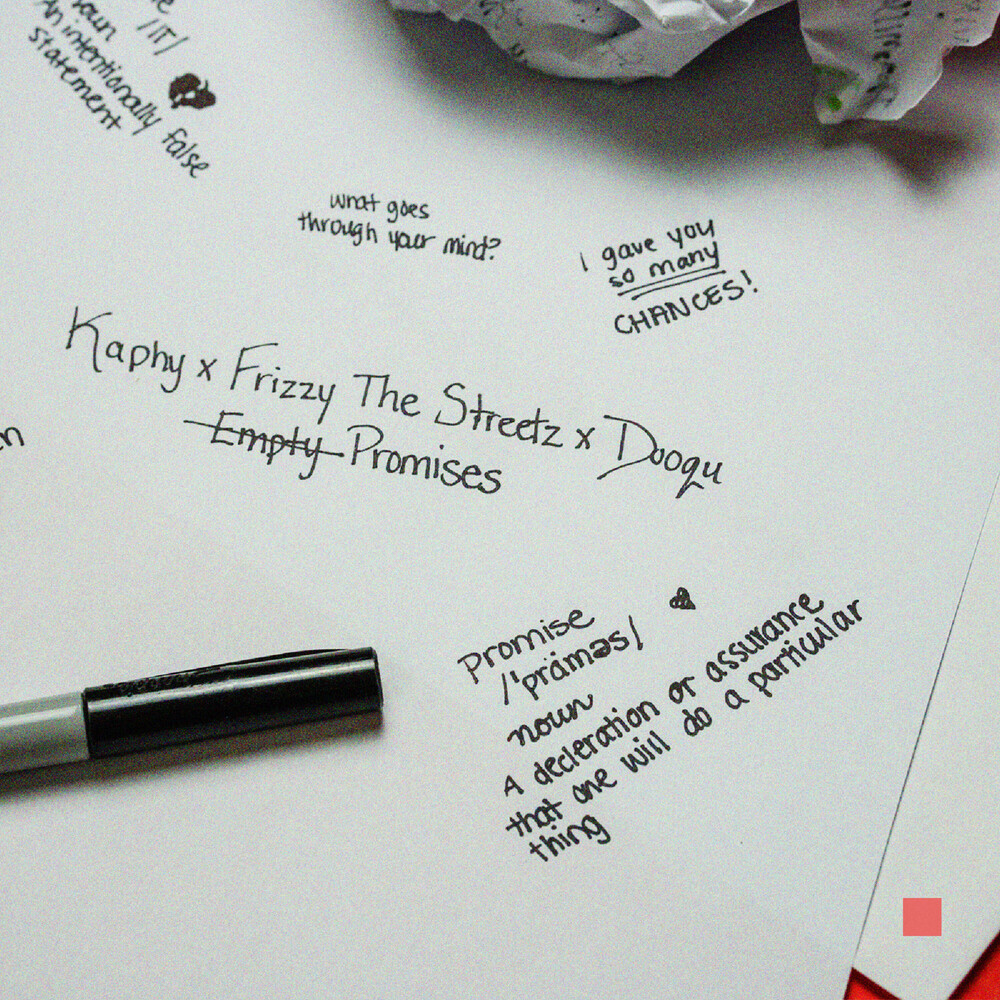 /laɪ/
noun
An intentionally false
statement
what goes
through your mind?
I gave you
so many
CHANCES!
Kaphy x Frizzy The Streetz x Dooqu
Empty Promises
Promise
/'präməs/
noun
A decleration or assurance
that one will do a particular
thing